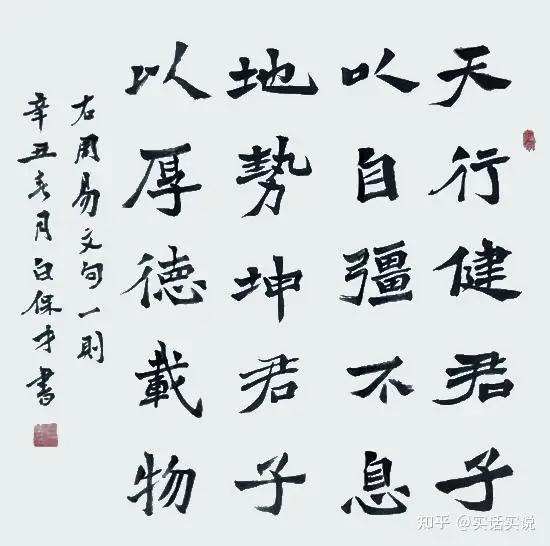 天行健君子
以自彊不息
地勢坤君子
以厚德載物
右周易文句一則
辛丑冬月白保才書
知乎 @实话实说